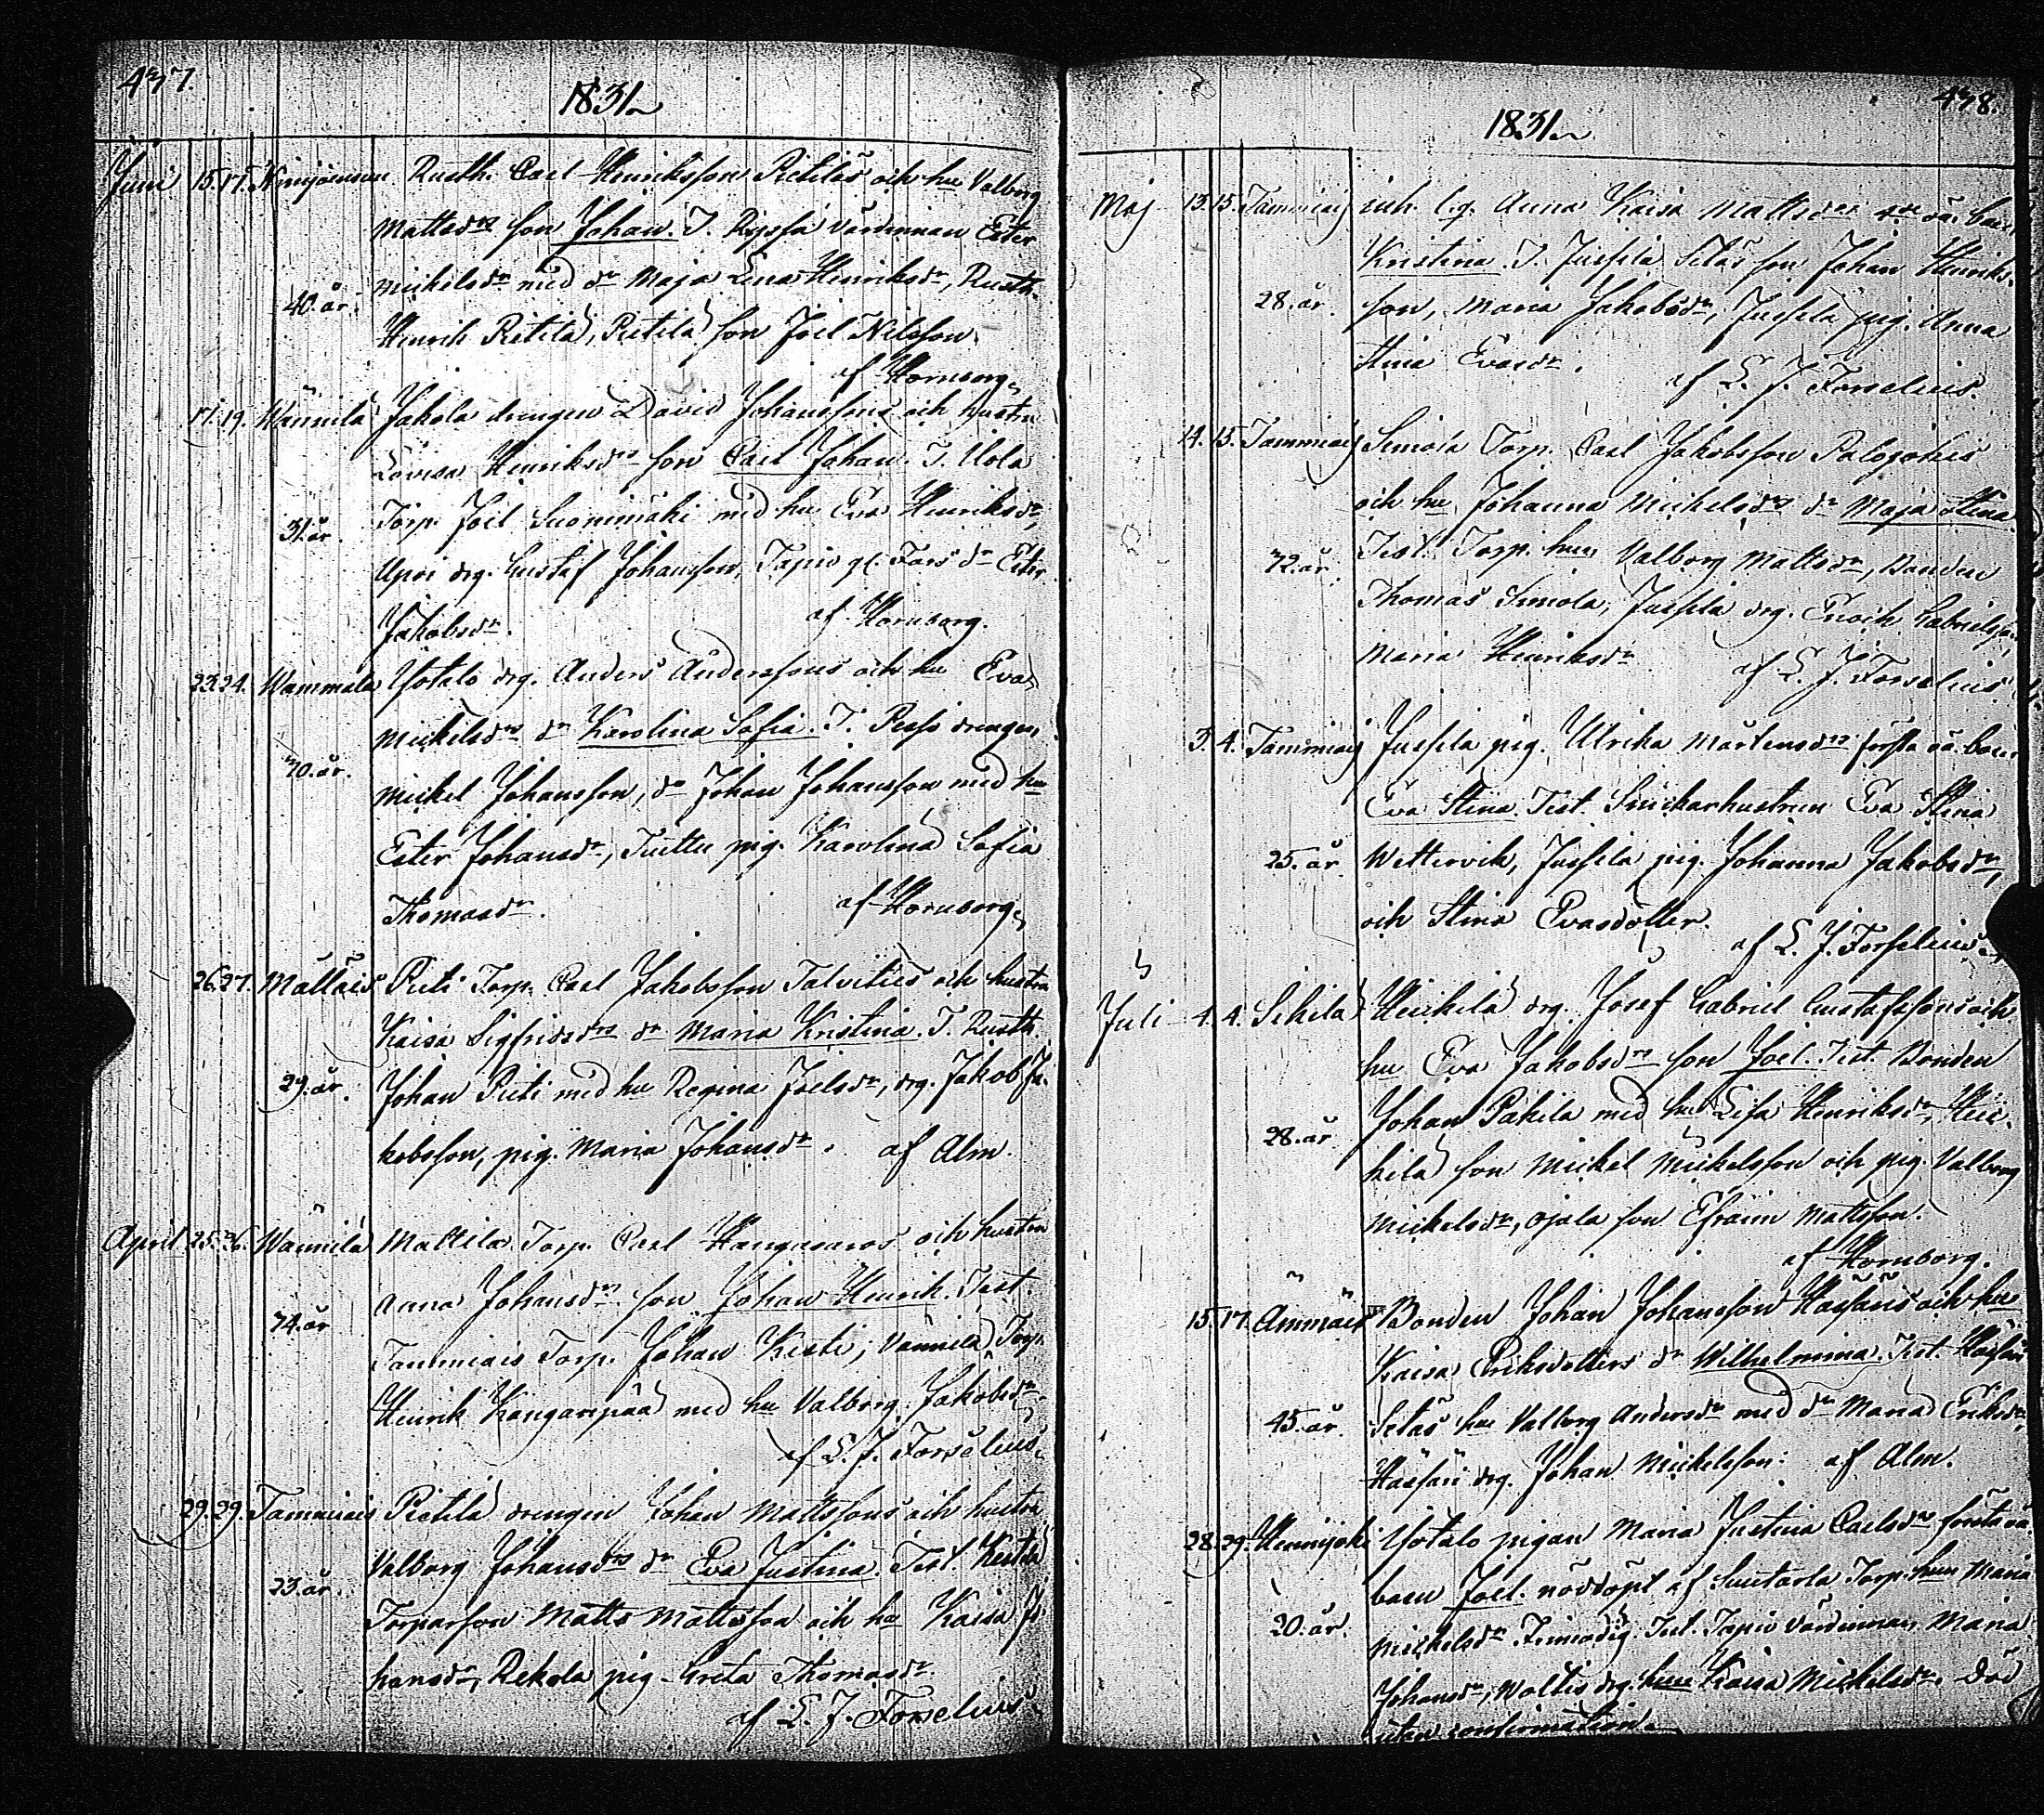 437.
1831
Juni 15. 17. Rusth. Carl Henriksson Pietiläs och hu Valborg
Mattsdrs son Johan. T. Ryssä värdinnan Ester
Michelsdr med dr Maja Lena Henriksdr, Rusth.
40. år. Henrik Pietilä, Pietilä son Joel Nilsson.
af Hornborg.
17. 19. Wännilä Jakola drengen David Johanssons och hustru
Lovisa Henriksdrs son Carl Johan. T. Uola
31. år. Torp. Joel Suonimäki med hu Eva Henriksdr,
Upoi drg. Gustaf Johansson, Tapio gl. Fars dr Ester
Jakobsdr. af Hornborg.
23. 24. Wammala Yotalo drg. Anders Anderssons och hu Eva
Michelsdrs dr Karolina Sofia. T. drengen
30. år. Michel Johansson, dr Johan Johansson med hu
Ester Johansdr, Tuittu pig. Karolina Sofia
Thomasdr. af Hornborg.
26. 27. Mälläis Pieti Torp. Carl Jakobsson Talvities och hustru
Kaisa Sigfridsdrs dr Maria Kristina. T. Rusth.
29. år. Johan Pieti med hu Regina Joelsdr, drg. Jakob Ja-
kobsson, pig. Maria Johansdr. af Alm.
April 25. 26. Wännilä Mattila Torp. Carl Kangasaros och hustru
Anna Johansdrs son Johan Henrik. Test.
34. år Tammiais Torp. Johan Kesti, Wännilä Torp.
Henrik Kangaspää med hu Valborg Jakobsdr.
af L. J. Forselius.
29. 29. Tammiais Pietilä drengen Johan Mattssons och hustru
Valborg Johansdrs dr Eva Justina. Test. Kestilä
23. år. Torparson Matts Mattsson och hu Kaisa Jo-
hansdr, Rekola pig. Greta Thomasdr.
af L. J. Forselius.
438.
1831
Maj 13. 15. Tammiais inh. l.g. Anna Kaisa Mattsdrs oä. barn
Kristina. T. Jussila Seläs son Johan Henriks-
28. år. son, Maria Jakobsdr, Jussila pig. Anna
Stina Evasdr. af L. J. Forselius.
14. 15. Tammiais Simola Torp. Carl Jakobsson Palojokis
och hu Johanna Michelsdrs dr Maja Stina.
32. år. Test. Torp. hun Valborg Mattsdr, Bonden
Thomas Simola, Jussila drg. Enoch Gabrielsson,
Maria Henriksdr. af L. J. Forselius
3. 4. Tammiais Jussila pig. Ulrika Mårtensdrs första oä. barn
Eva Stina. Test. Snickarhustrun Eva Stina
25. år. Wettervik, Jussila pig. Johanna Jakobsdr,
och Stina Evasdotter.
af L. J. Forselius.
Juli 4. 4. Sikilä Heikilä drg. Josef Gabriel Gustafssons och
hu Eva Jakobsdrs son Joel. Test. Bonden
28. år Johan Pakila med hu Lisa Henriksdr, Hei-
kilä son Michel Michelsson och pig. Valborg
Michelsdr, Ojala son Efraim Mattsson.
af Hornborg.
15. 17. Ammais Bonden Johan Johansson Hassaris och hu
Kaisa Eriksdotters dr Wilhelmina. Test. Hassari
45. år. Seläs hu Valborg Andersdr med dr Maria Eriksdr,
Hassari drg. Johan Michelsson. af Alm.
28. 29. Yotalo pigan Maria Justina Carlsdrs första oä.
barn Joel. nöddöpt af Suutarla Torp. hun Maria
20. år. Michelsdr Test. Tapio värdinnan Maria
Johansdr, Woltis drg. hun Kaisa Michelsdr. Död
utan confirmation.